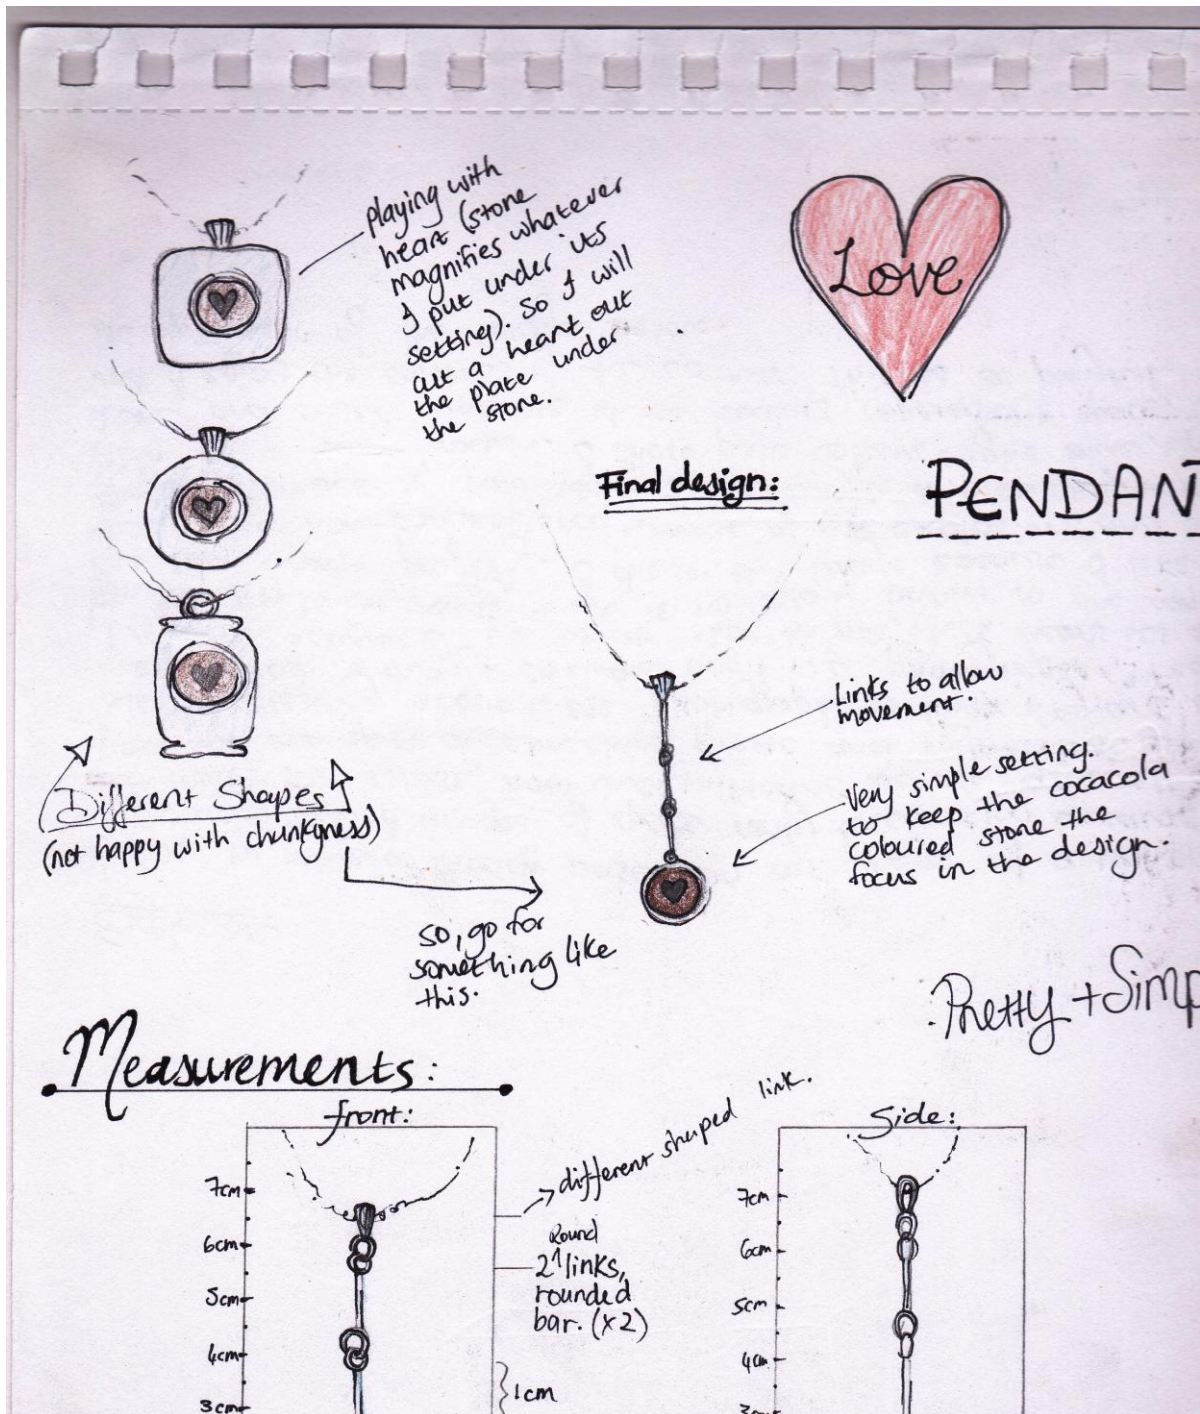 playing with
heart (stone
magnifies whatever
I put under its
setting). So I will
cut a heart out
the plate under
the stone.
Love
Final design:
PENDAN
Links to allow
movement.
Very simple setting.
to keep the cocacola
coloured stone the
focus in the design.
Different Shapes
(not happy with chunkyness)
so, go for
something like
this.
.Pretty + Simp
Measurements:
front:
different shaped link.
7cm
6cm
5cm
4cm
3cm
Round
2 links,
rounded
bar. (x2)
1cm
Side:
7cm
6cm
5cm
4cm